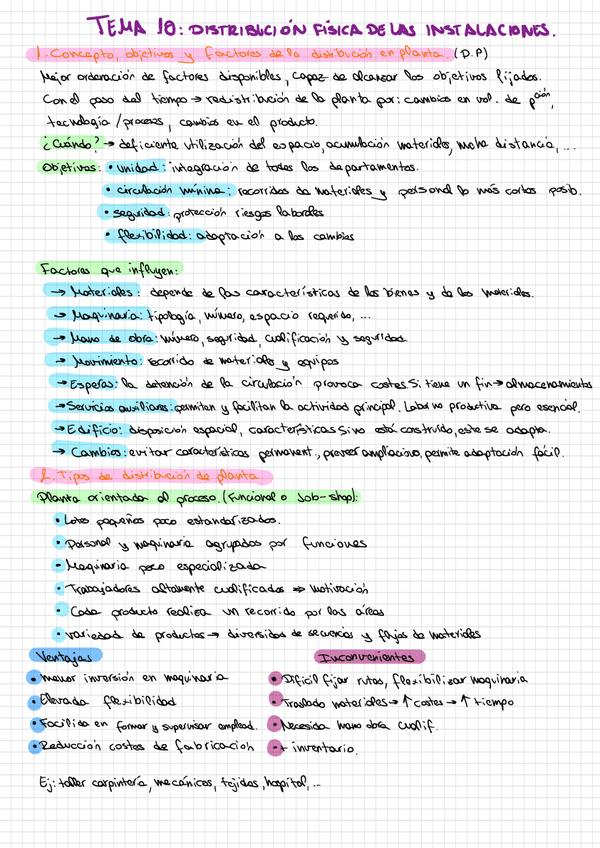 TEMA 10: DISTRIBUCIÓN FÍSICA DE LAS INSTALACIONES.
1. Concepto, objetivos y factores de la distribución en planta. (D.P)
Mejor ordenación de factores disponibles, capaz de alcanzar los objetivos fijados.
Con el paso del tiempo → redistribución de la planta por: cambios en vol. de pción,
tecnología / procesos, cambios en el producto.
¿Cuándo? → deficiente utilización del espacio, acumulación materiales, mucha distancia, ...
Objetivos: • unidad: integración de todos los departamentos.
• circulación mínima: recorridos de materiales y personal lo más cortos posib.
• seguridad: protección riesgos laborales
• flexibilidad: adaptación a los cambios
Factores que influyen:
→ Materiales: depende de las características de los bienes y de los materiales.
→ Maquinaria: tipología, número, espacio requerido, ...
→ Mano de obra: número, seguridad, cualificación y seguridad
→ Movimiento: recorrido de materiales y equipos
→ Esperas: la detención de la circulación provoca costes. Si tiene un fin → almacenamientos
→ Servicios auxiliares: permiten y facilitan la actividad principal. Labor no productiva pero esencial.
→ Edificio: disposición espacial, características. Si no está construido, este se adapta.
→ Cambios: evitar características permanent., preveer ampliaciones, permite adaptación fácil.
2. Tipos de distribución de planta.
Planta orientada al proceso. (Funcional o Job-shop):
• Lotes pequeños poco estandarizados.
• Personal y maquinaria agrupados por funciones
• Maquinaria poco especializada
• Trabajadores altamente cualificados ⇒ motivación
• Cada producto realiza un recorrido por las áreas
• variedad de productos → diversidad de secuencias y flujos de materiales
Ventajas
• menor inversión en maquinaria
• Elevada flexibilidad
• Facilidad en formar y supervisar emplead.
• Reducción costes de fabricación
Inconvenientes
• Difícil fijar rutas, flexibilizar maquinaria
• Traslado materiales → ↑ costes → ↑ tiempo
• Necesida mano obra cualif.
• + inventario.
Ej: taller carpintería, mecánicos, tejidos, hospital, ...